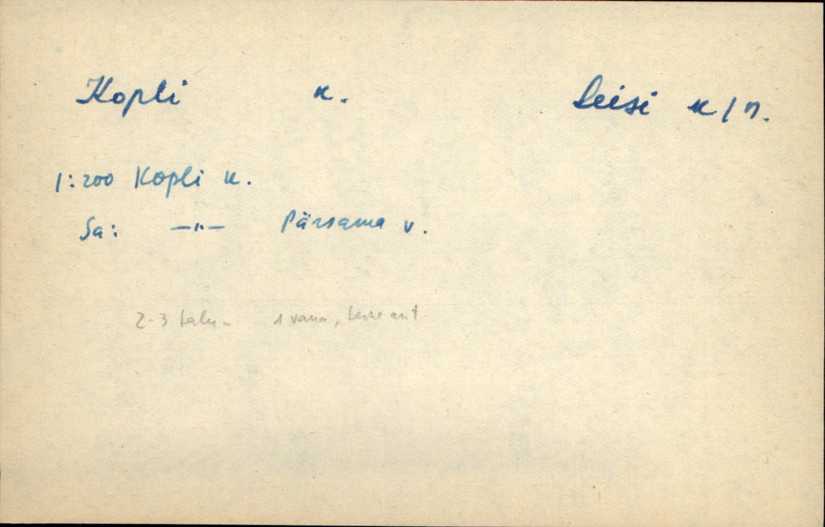 Kopli k. Leisi k/n.
1:200 Kopli k.
Sa: —"— Pärsama v.
2-3 talu 1 vana,